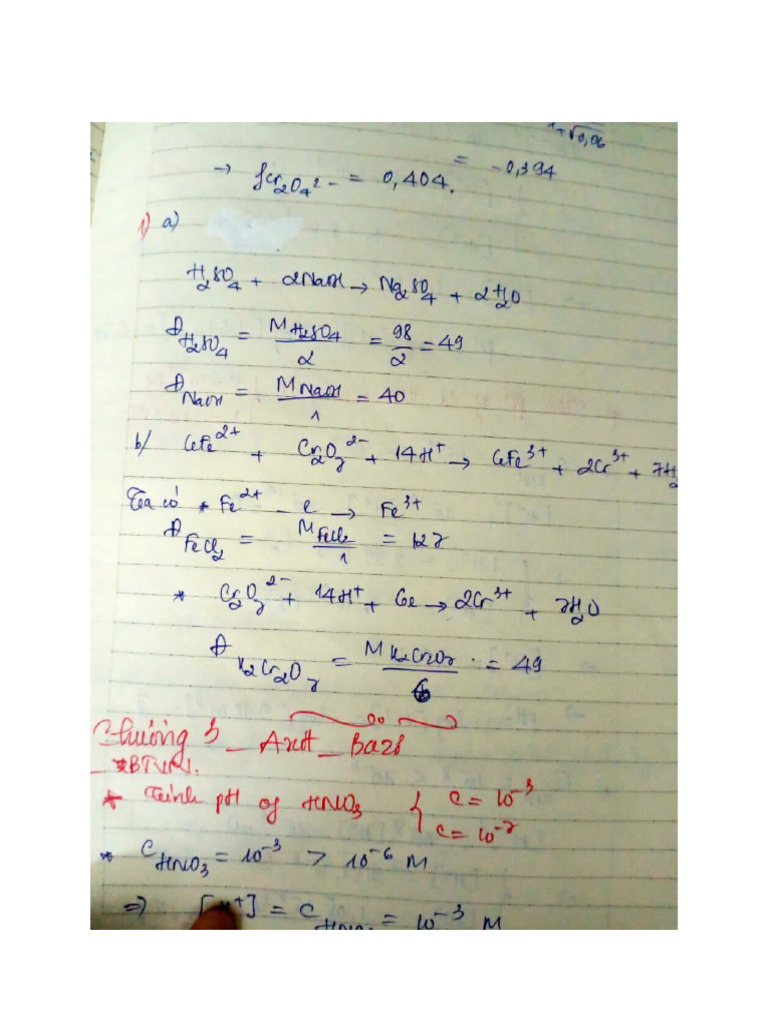 1+√0,06
= -0,394
→ fCr2O4²⁻ = 0,404.
1) a)
H2SO4 + 2NaOH → Na2SO4 + 2H2O
Đ H2SO4 = M H2SO4 / 2 = 98 / 2 = 49
Đ NaOH = M NaOH / 1 = 40
b/ 6Fe²⁺ + Cr2O7²⁻ + 14H⁺ → 6Fe³⁺ + 2Cr³⁺ + 7H2
Ta có * Fe²⁺ - e → Fe³⁺
Đ FeCl2 = M FeCl2 / 1 = 127
* Cr2O7²⁻ + 14H⁺ + 6e → 2Cr³⁺ + 7H2O
Đ K2Cr2O7 = M K2Cr2O7 / 6 = 49
Chương 3 _ Axit _ Bazơ
* BTVN.
* Tính pH of HNO3 { C = 10⁻³
C = 10⁻⁷
* C HNO3 = 10⁻³ > 10⁻⁶ M
⇒ [H⁺] = C HNO3 = 10⁻³ M